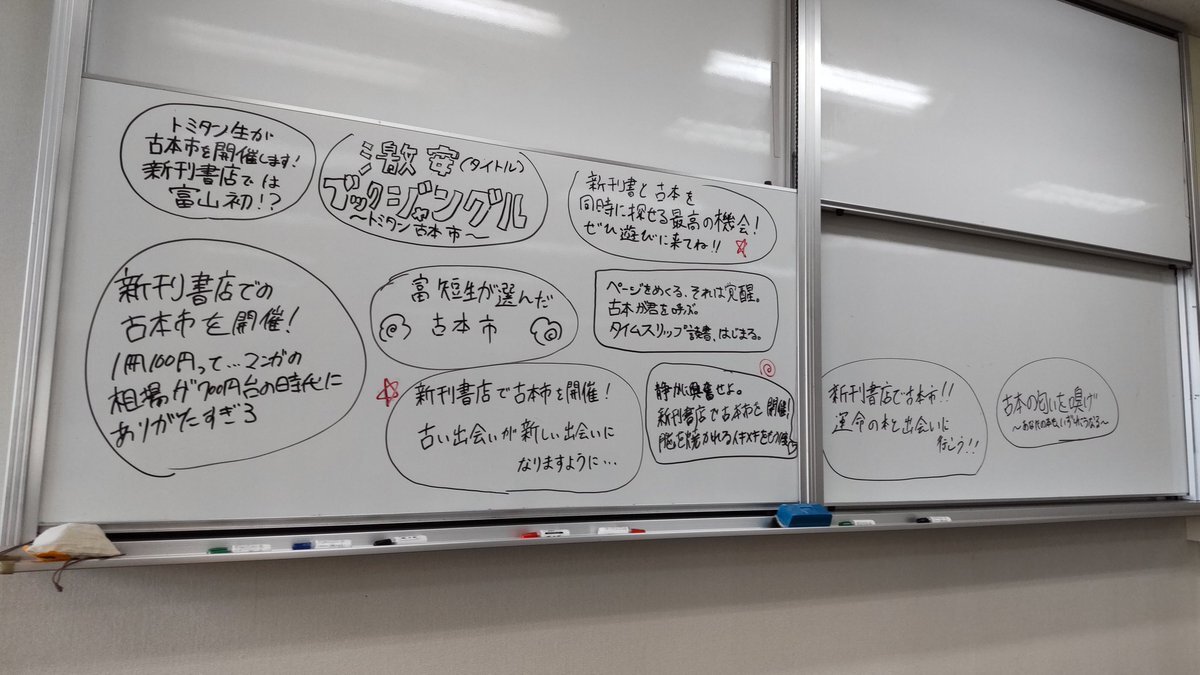 トミタン生が
古本市を開催します!
新刊書店では
富山初!?
激安(タイトル)
ブックジャングル
〜トミタン古本市〜
新刊書と古本を
同時に探せる最高の機会!
ぜひ遊びに来てね!!
新刊書店での
古本市を開催!
1冊100円って…マンガの
相場が700円台の時代に
ありがたすぎろ
富短生が選んだ
古本市
ページをめくる、それは覚醒。
古本が君を呼ぶ。
タイムスリップ読書、はじまる。
新刊書店で古本市を開催!
古い出会いが新しい出会いに
なりますように…
静かに興奮せよ。
新刊書店で古本市を開催!
脳を焼かれる
新刊書店で古本市!!
運命の本と出会いに
行こう!!
古本の匂いを嗅げ
〜あなたの本も、いずれこうなる〜